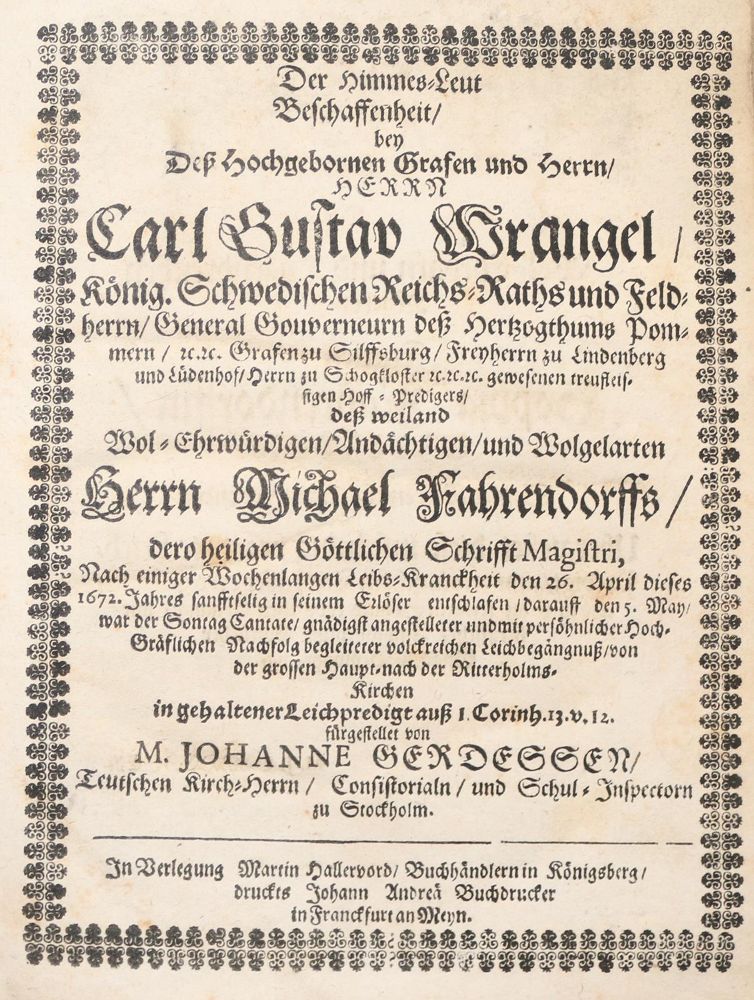 Der Himmes-Leut
Beschaffenheit/
bey
Deß Hochgebornen Grafen und Herrn/
HERRN
Carl Gustav Wrangel/
König. Schwedischen Reichs-Raths und Feld-
herrn/ General Gouverneurn deß Hertzogthums Pom-
mern/ ꝛc.ꝛc. Grafen zu Silffsburg/ Freyherrn zu Lindenberg
und Lüdenhof/ Herrn zu Schogkloster ꝛc.ꝛc.ꝛc. gewesenen treufleis-
sigen Hoff-Predigers/
deß weiland
Wol-Ehrwürdigen/ Andächtigen/ und Wolgelarten
Herrn Michael Fahrendorffs/
dero heiligen Göttlichen Schrifft Magistri,
Nach einiger Wochenlangen Leibs-Kranckheit den 26. April dieses
1672. Jahres sanfftselig in seinem Erlöser entschlafen/ darauff den 5. May/
war der Sontag Cantate/ gnädigst angestelleter und mit persöhnlicher Hoch-
Gräflichen Nachfolg begleiteter volckreichen Leichbegängnuß/ von
der grossen Haupt-nach der Ritterholms-
Kirchen
in gehaltener Leichpredigt auß 1. Corinh. 13. v. 12.
fürgestellet von
M. JOHANNE GERDESSEN/
Teutschen Kirch-Herrn/ Consistorialn/ und Schul-Inspectorn
zu Stockholm.
In Verlegung Martin Hallervord/ Buchhändlern in Königsberg/
druckts Johann Andreä Buchdrucker
in Franckfurt an Meyn.